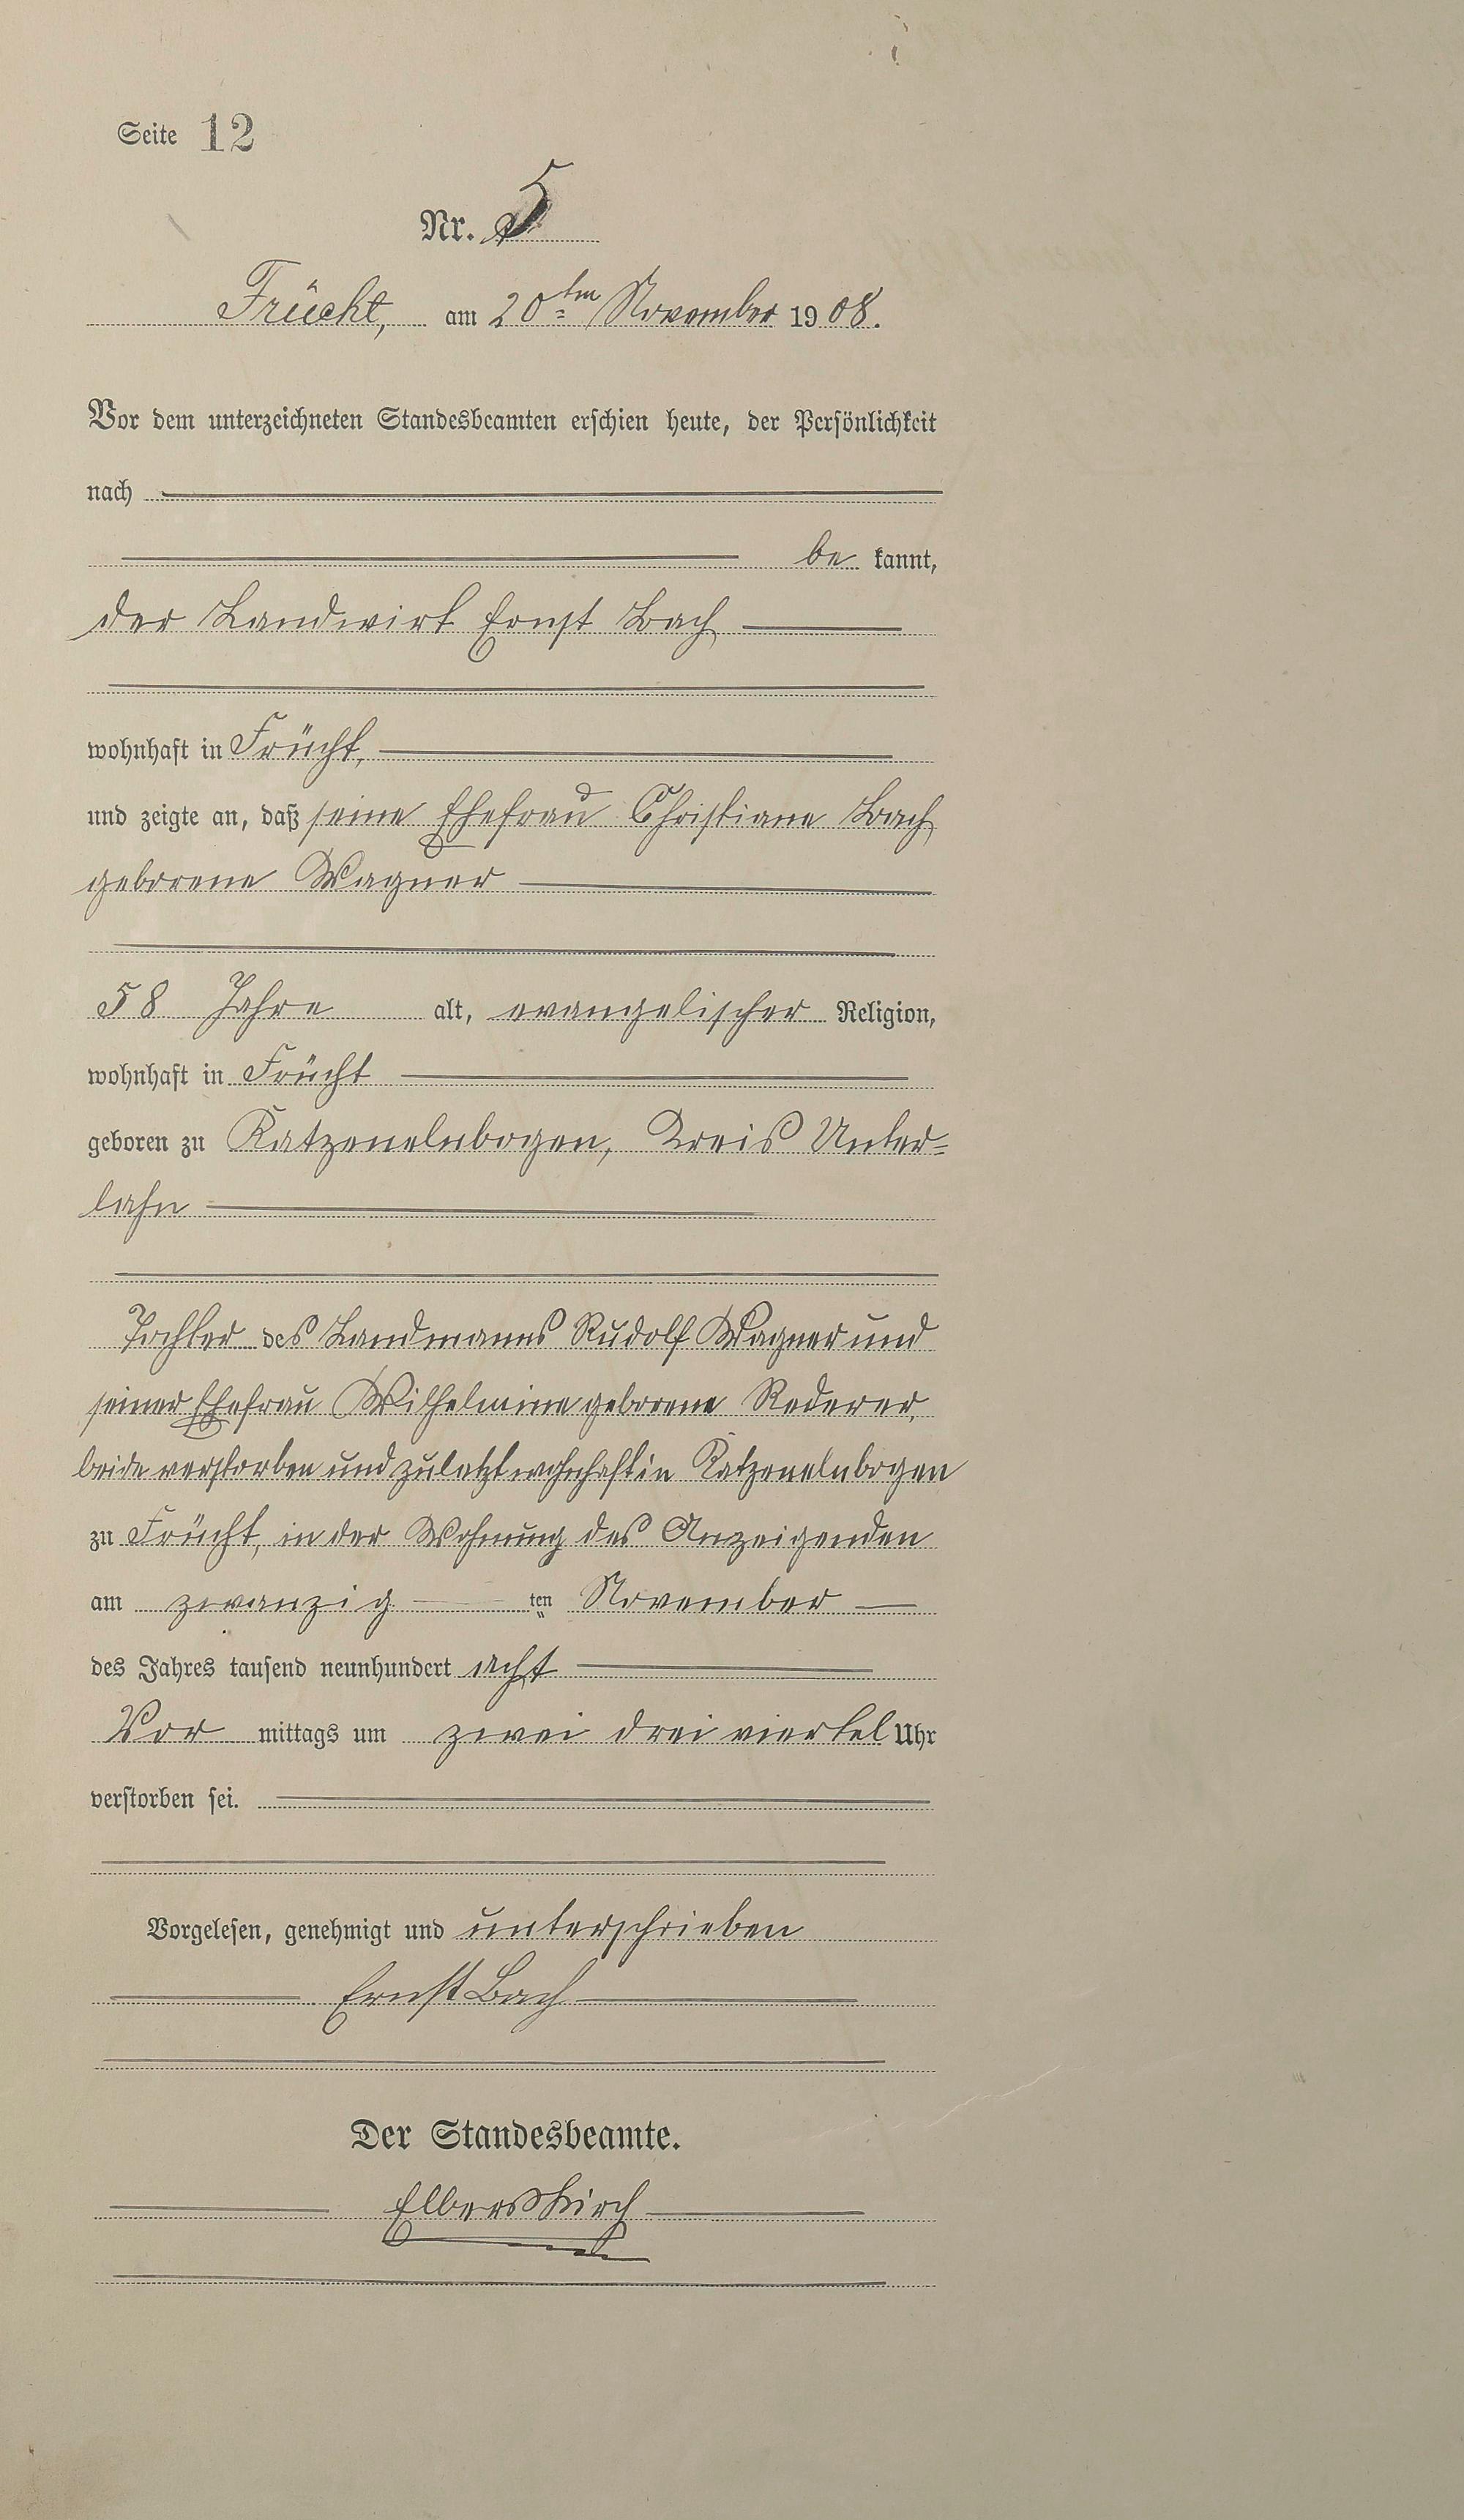 Seite 12
Nr. 5
Frücht, am 20ten November 1908.
Vor dem unterzeichneten Standesbeamten erschien heute, der Persönlichkeit
nach
be kannt,
der Landwirt Ernst Bach
wohnhaft in Frücht,
und zeigte an, daß seine Ehefrau Christiane Bach
geborene Wagner
58 Jahre alt, evangelischer Religion,
wohnhaft in Frücht
geboren zu Katzenelnbogen, Kreis Unter-
lahn
Tochter des Landmanns Rudolf Wagner und
seiner Ehefrau Wilhelmine geborene Rederer,
beide verstorben und zuletzt wohnhaft in Katzenelnbogen
zu Frücht, in der Wohnung des Anzeigenden
am zwanzig ten November
des Jahres tausend neunhundert acht
Vor mittags um zwei drei viertel Uhr
verstorben sei.
Vorgelesen, genehmigt und unterschrieben
Ernst Bach
Der Standesbeamte.
Elberskirch